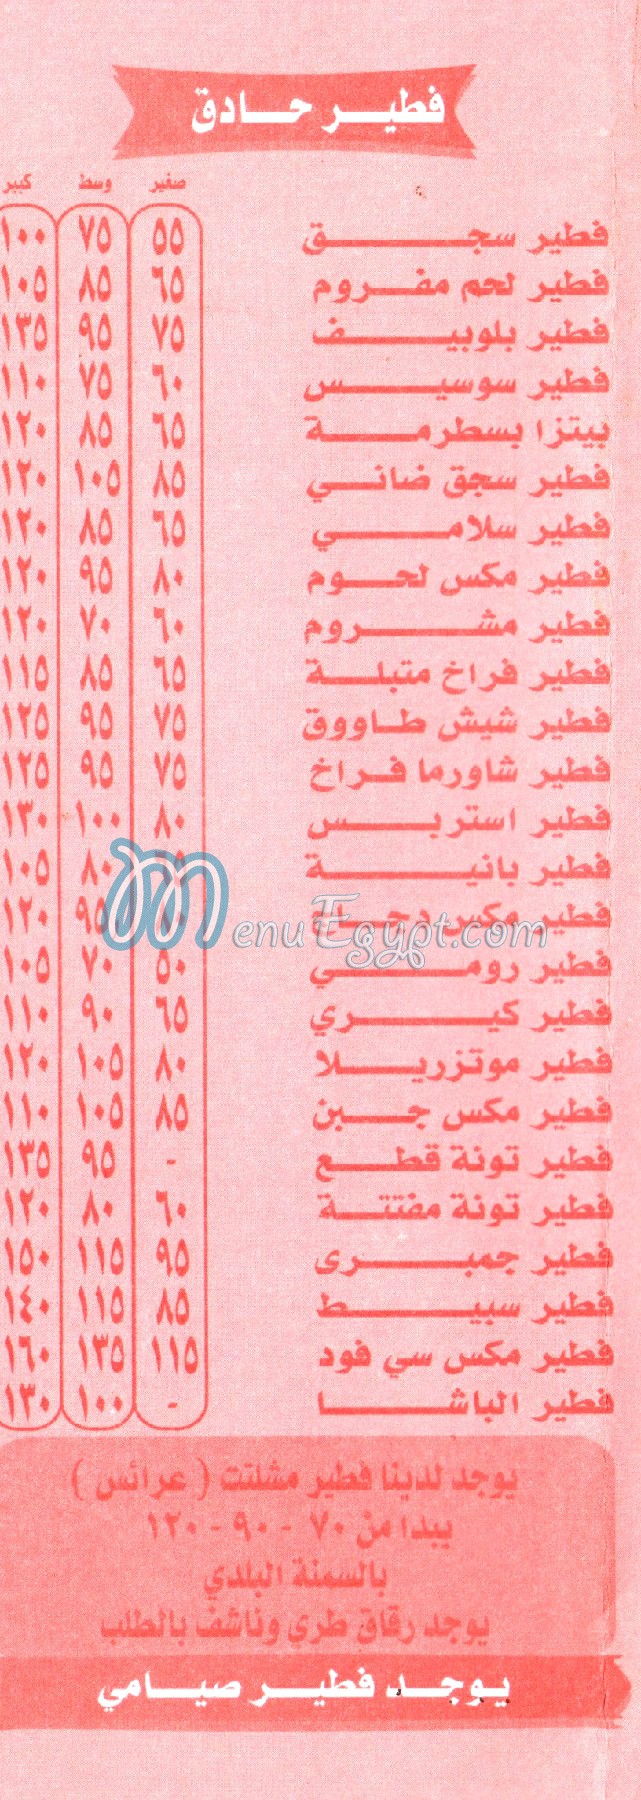 فطير حادق
صغير وسط كبير
فطير سجق ٥٥ ٧٥ ١٠٠
فطير لحم مفروم ٦٥ ٨٥ ١٠٥
فطير بلوبيف ٧٥ ٩٥ ١٣٥
فطير سوسيس ٦٠ ٧٥ ١١٠
بيتزا بسطرمة ٦٥ ٨٥ ١٢٠
فطير سجق ضاني ٨٥ ١٠٥ ١٢٠
فطير سلامي ٦٥ ٨٥ ١٢٠
فطير مكس لحوم ٨٠ ٩٥ ١٢٠
فطير مشروم ٦٠ ٧٠ ١٢٠
فطير فراخ متبلة ٦٥ ٨٥ ١١٥
فطير شيش طاووق ٧٥ ٩٥ ١٢٥
فطير شاورما فراخ ٧٥ ٩٥ ١٢٥
فطير استربس ٨٠ ١٠٠ ١٣٠
فطير بانية ٨٠ ١٠٥
فطير مكس دجاج ٩٥ ١٢٠
MenuEgypt.com
فطير رومي ٥٠ ٧٠ ١٠٥
فطير كيري ٦٥ ٩٠ ١١٠
فطير موتزريلا ٨٠ ١٠٥ ١٢٠
فطير مكس جبن ٨٥ ١٠٥ ١١٠
فطير تونة قطع - ٩٥ ١٣٥
فطير تونة مفتتة ٦٠ ٨٠ ١٢٠
فطير جمبرى ٩٥ ١١٥ ١٥٠
فطير سبيط ٨٥ ١١٥ ١٤٠
فطير مكس سي فود ١١٥ ١٣٥ ١٦٠
فطير الباشا - ١٠٠ ١٣٠
يوجد لدينا فطير مشلتت ( عرائس )
يبدا من ٧٠ - ٩٠ - ١٢٠
بالسمنة البلدي
يوجد رقاق طري وناشف بالطلب
يوجد فطير صيامي